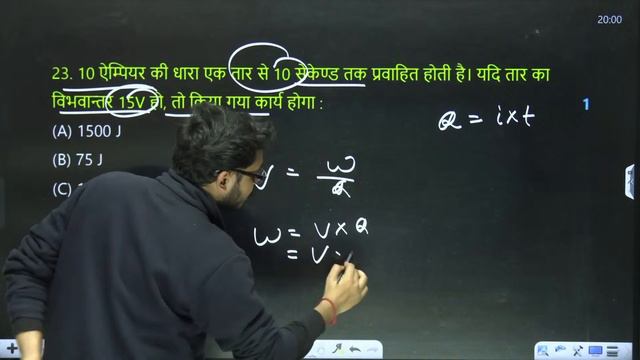 20:00
23. 10 ऐम्पियर की धारा एक तार से 10 सेकेण्ड तक प्रवाहित होती है। यदि तार का
विभवान्तर 15V हो, तो किया गया कार्य होगा :
1
Q = i×t
(A) 1500 J
(B) 75 J
(C)
V = W/Q
W = V × Q
= V